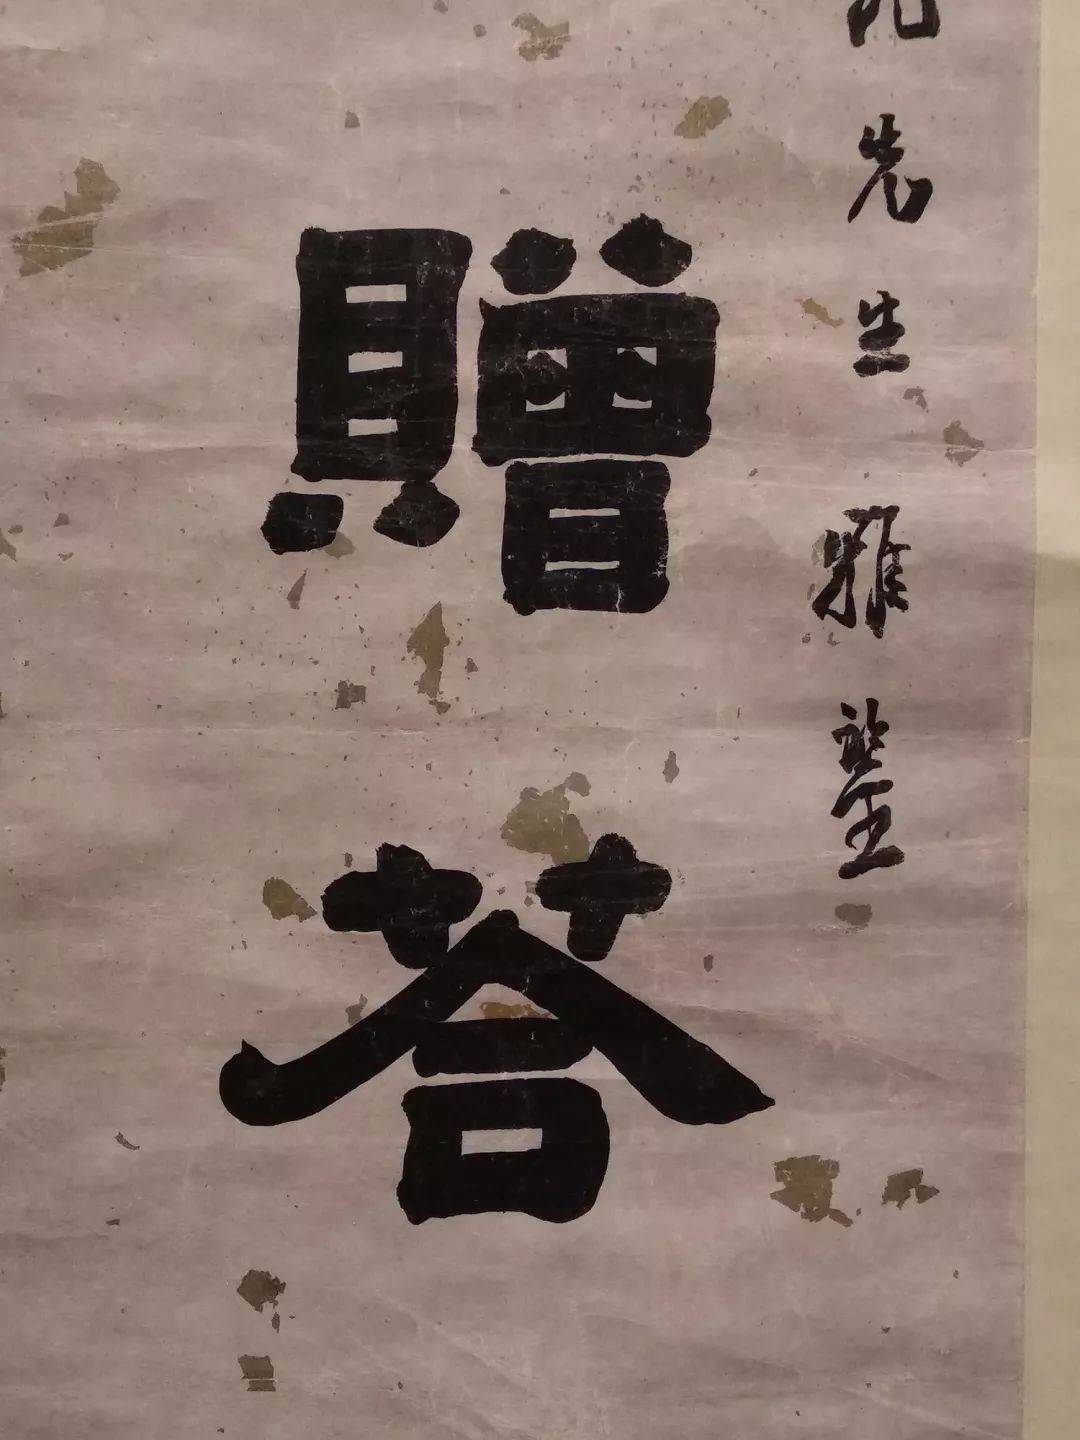 先生雅鑒
贈荅